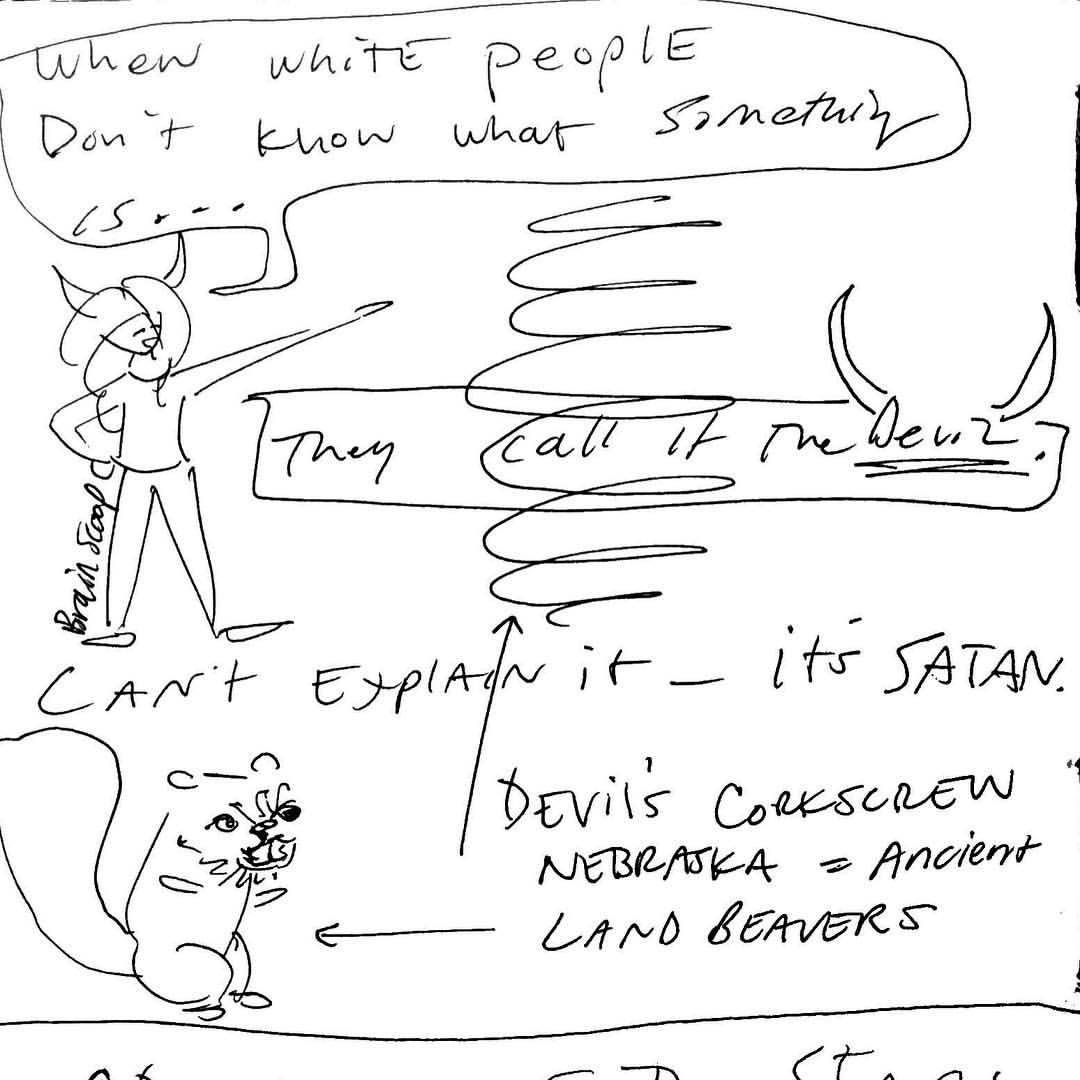 When white people
Don't know what something
is....
They call it the Devil.
Brain Scoop
Can't Explain it – it's SATAN.
Devil's Corkscrew
Nebraska = Ancient
Land Beavers